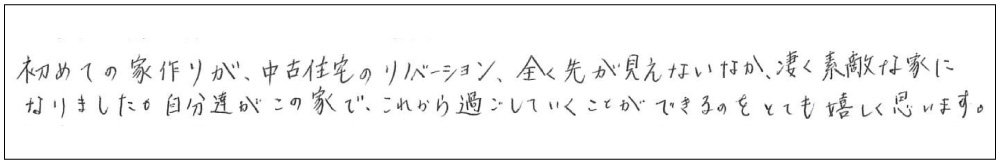 初めての家作りが、中古住宅のリノベーション、全く先が見えないなか、凄く素敵な家に
なりました。自分達がこの家で、これから過ごしていくことができるのをとても嬉しく思います。